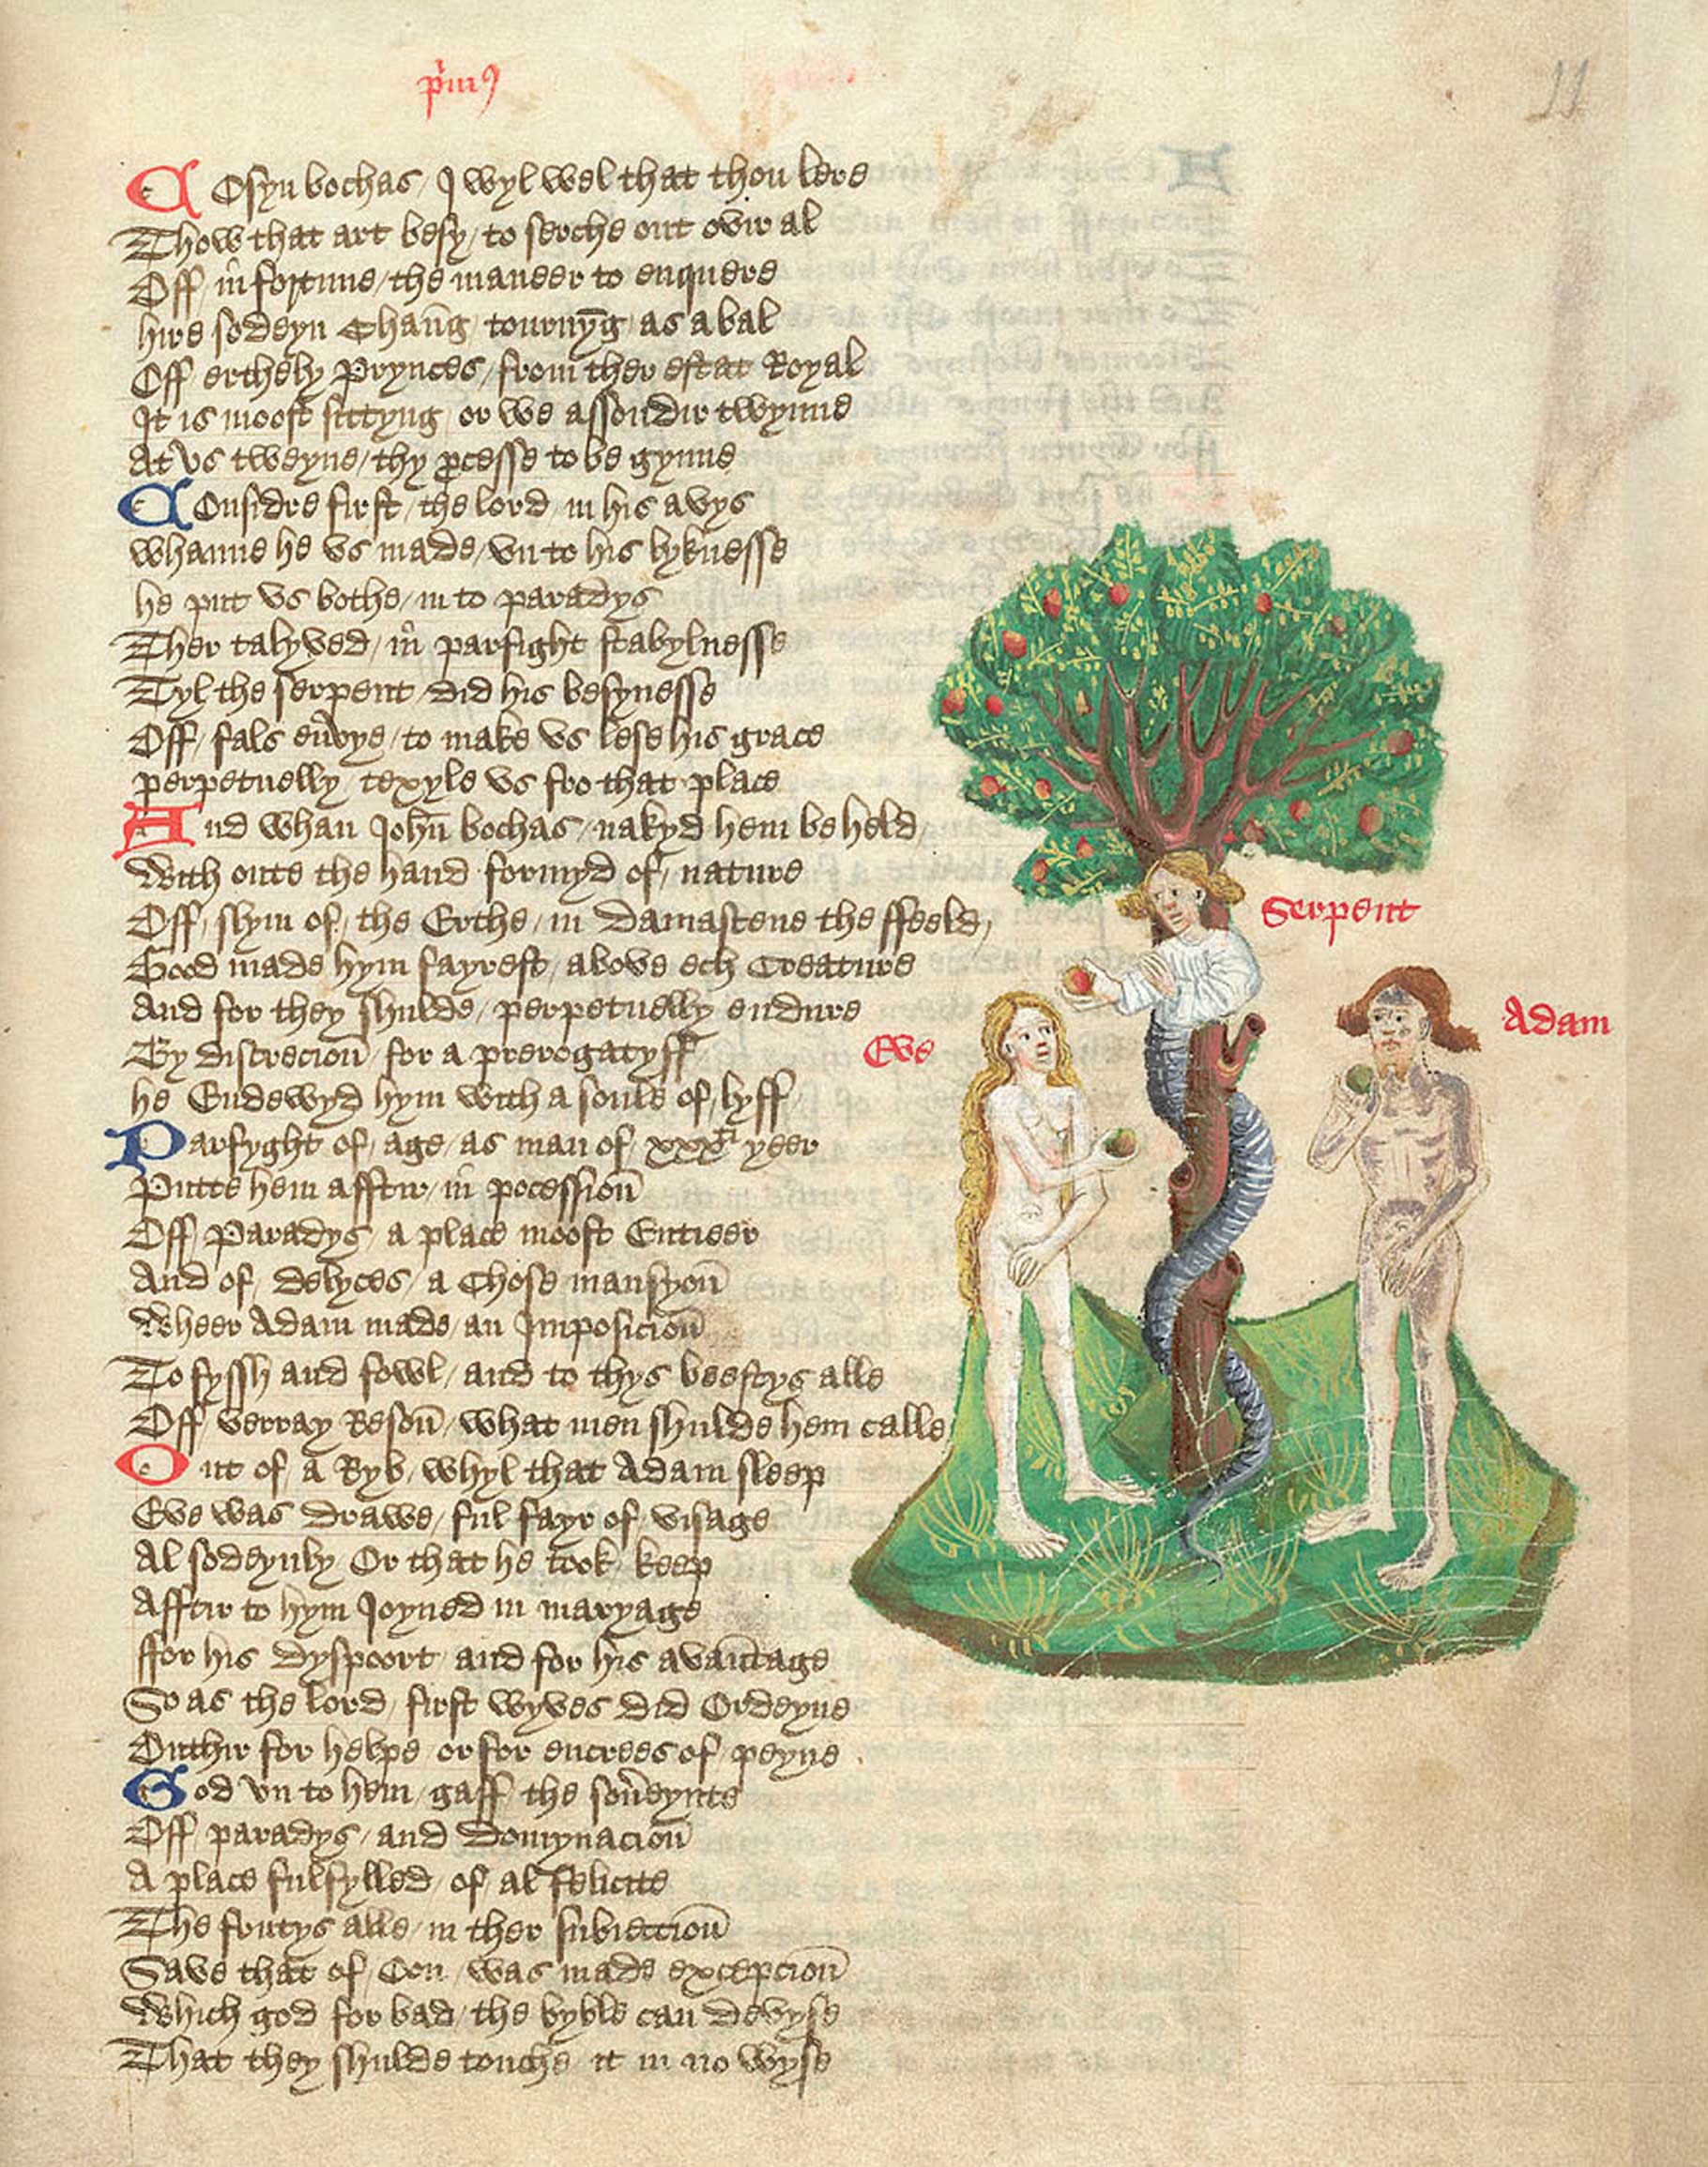 p̄imꝰ
11
COsyn bochas / I wyl wel that thou lere
Thow that art besy / to serche out ov̄ir al
Off / in̄fortune / the maneer to enquere
hire sodeyn Chaūg / tournȳg / as a bal
Off erthely Prynces / from ther estat Royal
It is moost sittyng / or we assondir twynne
At vs tweyne / thy ꝓcesse to be gynne
COnsidre first / the lord / in his avys
whanne he vs made / vn to his lyknesse
he put vs bothe / in to paradys
Ther talyved / in̄ parfight stabylnesse
Tyl the serpent / did his besynesse
Off / fals en̄vye / to make vs lese his grace
perpetuelly / texyle vs fro that place
And whan John̄ bochas / nakyd hem be held
With oute the hand / formyd of / nature
Off / slym of / the Erthe / in Damascene the ffeeld /
Good made hym fayrest / above ech Creature
And for they shulde / perpetuelly endure
By discrecioū / for a prerogatyff
he Endewyd hym with a soule of / lyff
Parfyght of / age / as man of / xxxti yeer
Putte hem afftir / in̄ pocessioū
Off / Paradys / a place moost Entieer
And of / delyces / a Chose mansyoū
Wheer Adam made / an Jmposicioū
To fyssh and fowl / and to thys beestys alle
Off / verray Resoū / what men shulde hem calle
Out of / a Ryb / whyl that Adam sleep
Eve was drawe / ful fayr of / visage
Al sodeynly / Or that he took / keep
Afftir to hym Joyned in maryage
ffor his dyspoort / and for his avaūtage
So as the lord / first wyves did Ordeyne
Outhir for helpe / or for encrees of / peyne
God vn to hem / gaff / the sov̄eynte
Off / paradys / and Domynacioū
A place fulfylled / of / al felicite
The frutys alle / in ther subieccioū
Save that of / Oon / was made excepcioū
Which god for bad / the byble can devyse
That they shulde touche it in no wyse
Serpent
Adam
Eve